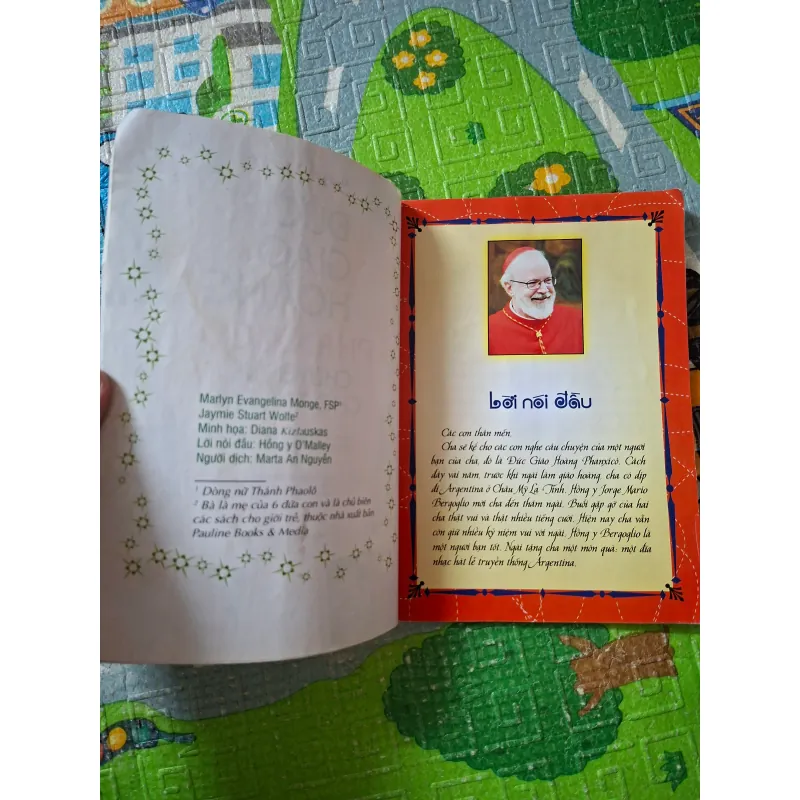 Marlyn Evangelina Monge, FSP¹
Jaymie Stuart Wolfe²
Minh họa: Diana Kizlauskas
Lời nói đầu: Hồng y O'Malley
Người dịch: Marta An Nguyễn
¹ Dòng nữ Thánh Phaolô
² Bà là mẹ của 6 đứa con và là chủ biên
các sách cho giới trẻ, thuộc nhà xuất bản
Pauline Books & Media
Lời nói đầu
Các con thân mến,
Cha sẽ kể cho các con nghe câu chuyện của một người
bạn của cha, đó là Đức Giáo Hoàng Phanxicô. Cách
đây vài năm, trước khi ngài làm giáo hoàng, cha có dịp
đi Argentina ở Châu Mỹ La Tinh, Hồng y Jorge Mario
Bergoglio mời cha đến thăm ngài. Buổi gặp gỡ của hai
cha thật vui và thật nhiều tiếng cười. Hiện nay cha vẫn
còn giữ nhiều kỷ niệm vui với ngài. Hồng y Bergoglio là
một người bạn tốt. Ngài tặng cha một món quà: một đĩa
nhạc hát lễ truyền thống Argentina.